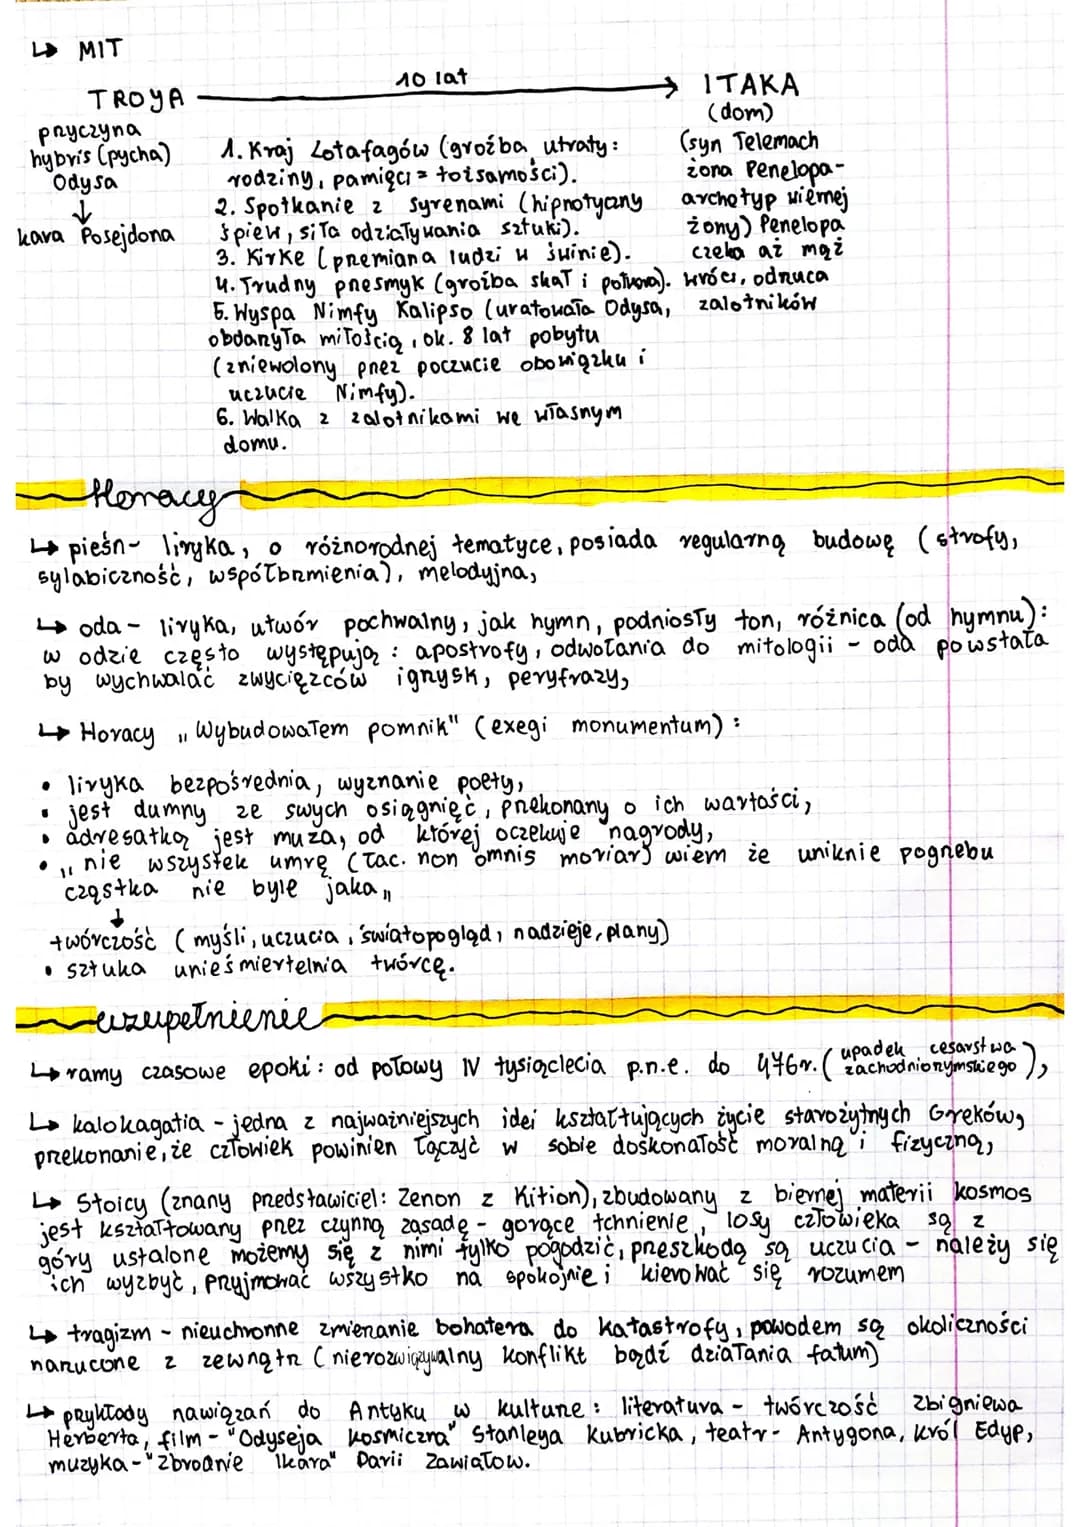 ↳ MIT
TROYA 10 lat → ITAKA
(dom)
przyczyna
hybris (pycha)
Odysa
↓
kara Posejdona
1. Kraj Lotafagów (groźba utraty:
rodziny, pamięci = tożsamości).
2. Spotkanie z syrenami (hipnotyczny
śpiew, siła odziaływania sztuki).
3. Kirke (przemiana ludzi w świnie).
4. Trudny przesmyk (groźba skał i potwora).
5. Wyspa Nimfy Kalipso (uratowała Odysa,
obdarzyła miłością, ok. 8 lat pobytu
(zniewolony przez poczucie obowiązku i
uczucie Nimfy).
6. Walka z zalotnikami we własnym
domu.
(syn Telemach
żona Penelopa-
archetyp wiernej
żony) Penelopa
czeka aż mąż
wróci, odrzuca
zalotników
Horacy
↳ pieśń- liryka, o różnorodnej tematyce, posiada regularną budowę (strofy,
sylabiczność, współbrzmienia), melodyjna,
↳ oda - liryka, utwór pochwalny, jak hymn, podniosły ton, różnica (od hymnu):
w odzie często występują: apostrofy, odwołania do mitologii - oda powstała
by wychwalać zwycięzców igrzysk, peryfrazy,
↳ Horacy „Wybudowałem pomnik" (exegi monumentum):
• liryka bezpośrednia, wyznanie poety,
• jest dumny ze swych osiągnięć, przekonany o ich wartości,
• adresatką jest muza, od której oczekuje nagrody,
• „nie wszystek umrę (łac. non omnis moriar) wiem że uniknie pogrzebu
cząstka nie byle jaka„
↓
twórczość (myśli, uczucia, światopogląd, nadzieje, plany)
• sztuka unieśmiertelnia twórcę.
uzupełnienie
↳ ramy czasowe epoki: od połowy IV tysiąclecia p.n.e. do 476r. (upadek cesarstwa
zachodniorzymskiego),
↳ kalokagatia - jedna z najważniejszych idei kształtujących życie starożytnych Greków,
przekonanie, że człowiek powinien łączyć w sobie doskonałość moralną i fizyczną,
↳ Stoicy (znany przedstawiciel: Zenon z Kition), zbudowany z biernej materii kosmos
jest kształtowany przez czynną zasadę - gorące tchnienie, losy człowieka są z
góry ustalone możemy się z nimi tylko pogodzić, przeszkodą są uczucia - należy się
ich wyzbyć, przyjmować wszystko na spokojnie i kierować się rozumem
↳ tragizm - nieuchronne zmierzanie bohatera do katastrofy, powodem są okoliczności
narzucone z zewnątrz (nierozwiązywalny konflikt bądź działania fatum)
↳ przykłady nawiązań do Antyku w kulturze: literatura - twórczość Zbigniewa
Herberta, film - "Odyseja kosmiczna" Stanleya Kubricka, teatr- Antygona, król Edyp,
muzyka - "Zbrodnie Ikara" Darii Zawiałow.